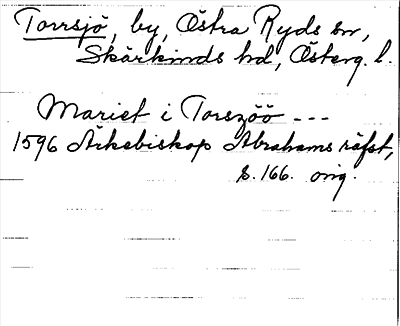 Torrsjö, by, Östra Ryds sn,
Skärkinds hd, Österg. l.
Mariet i Torszöö ---
1596 Ärkebiskop Abrahams räfst,
s. 166. orig.